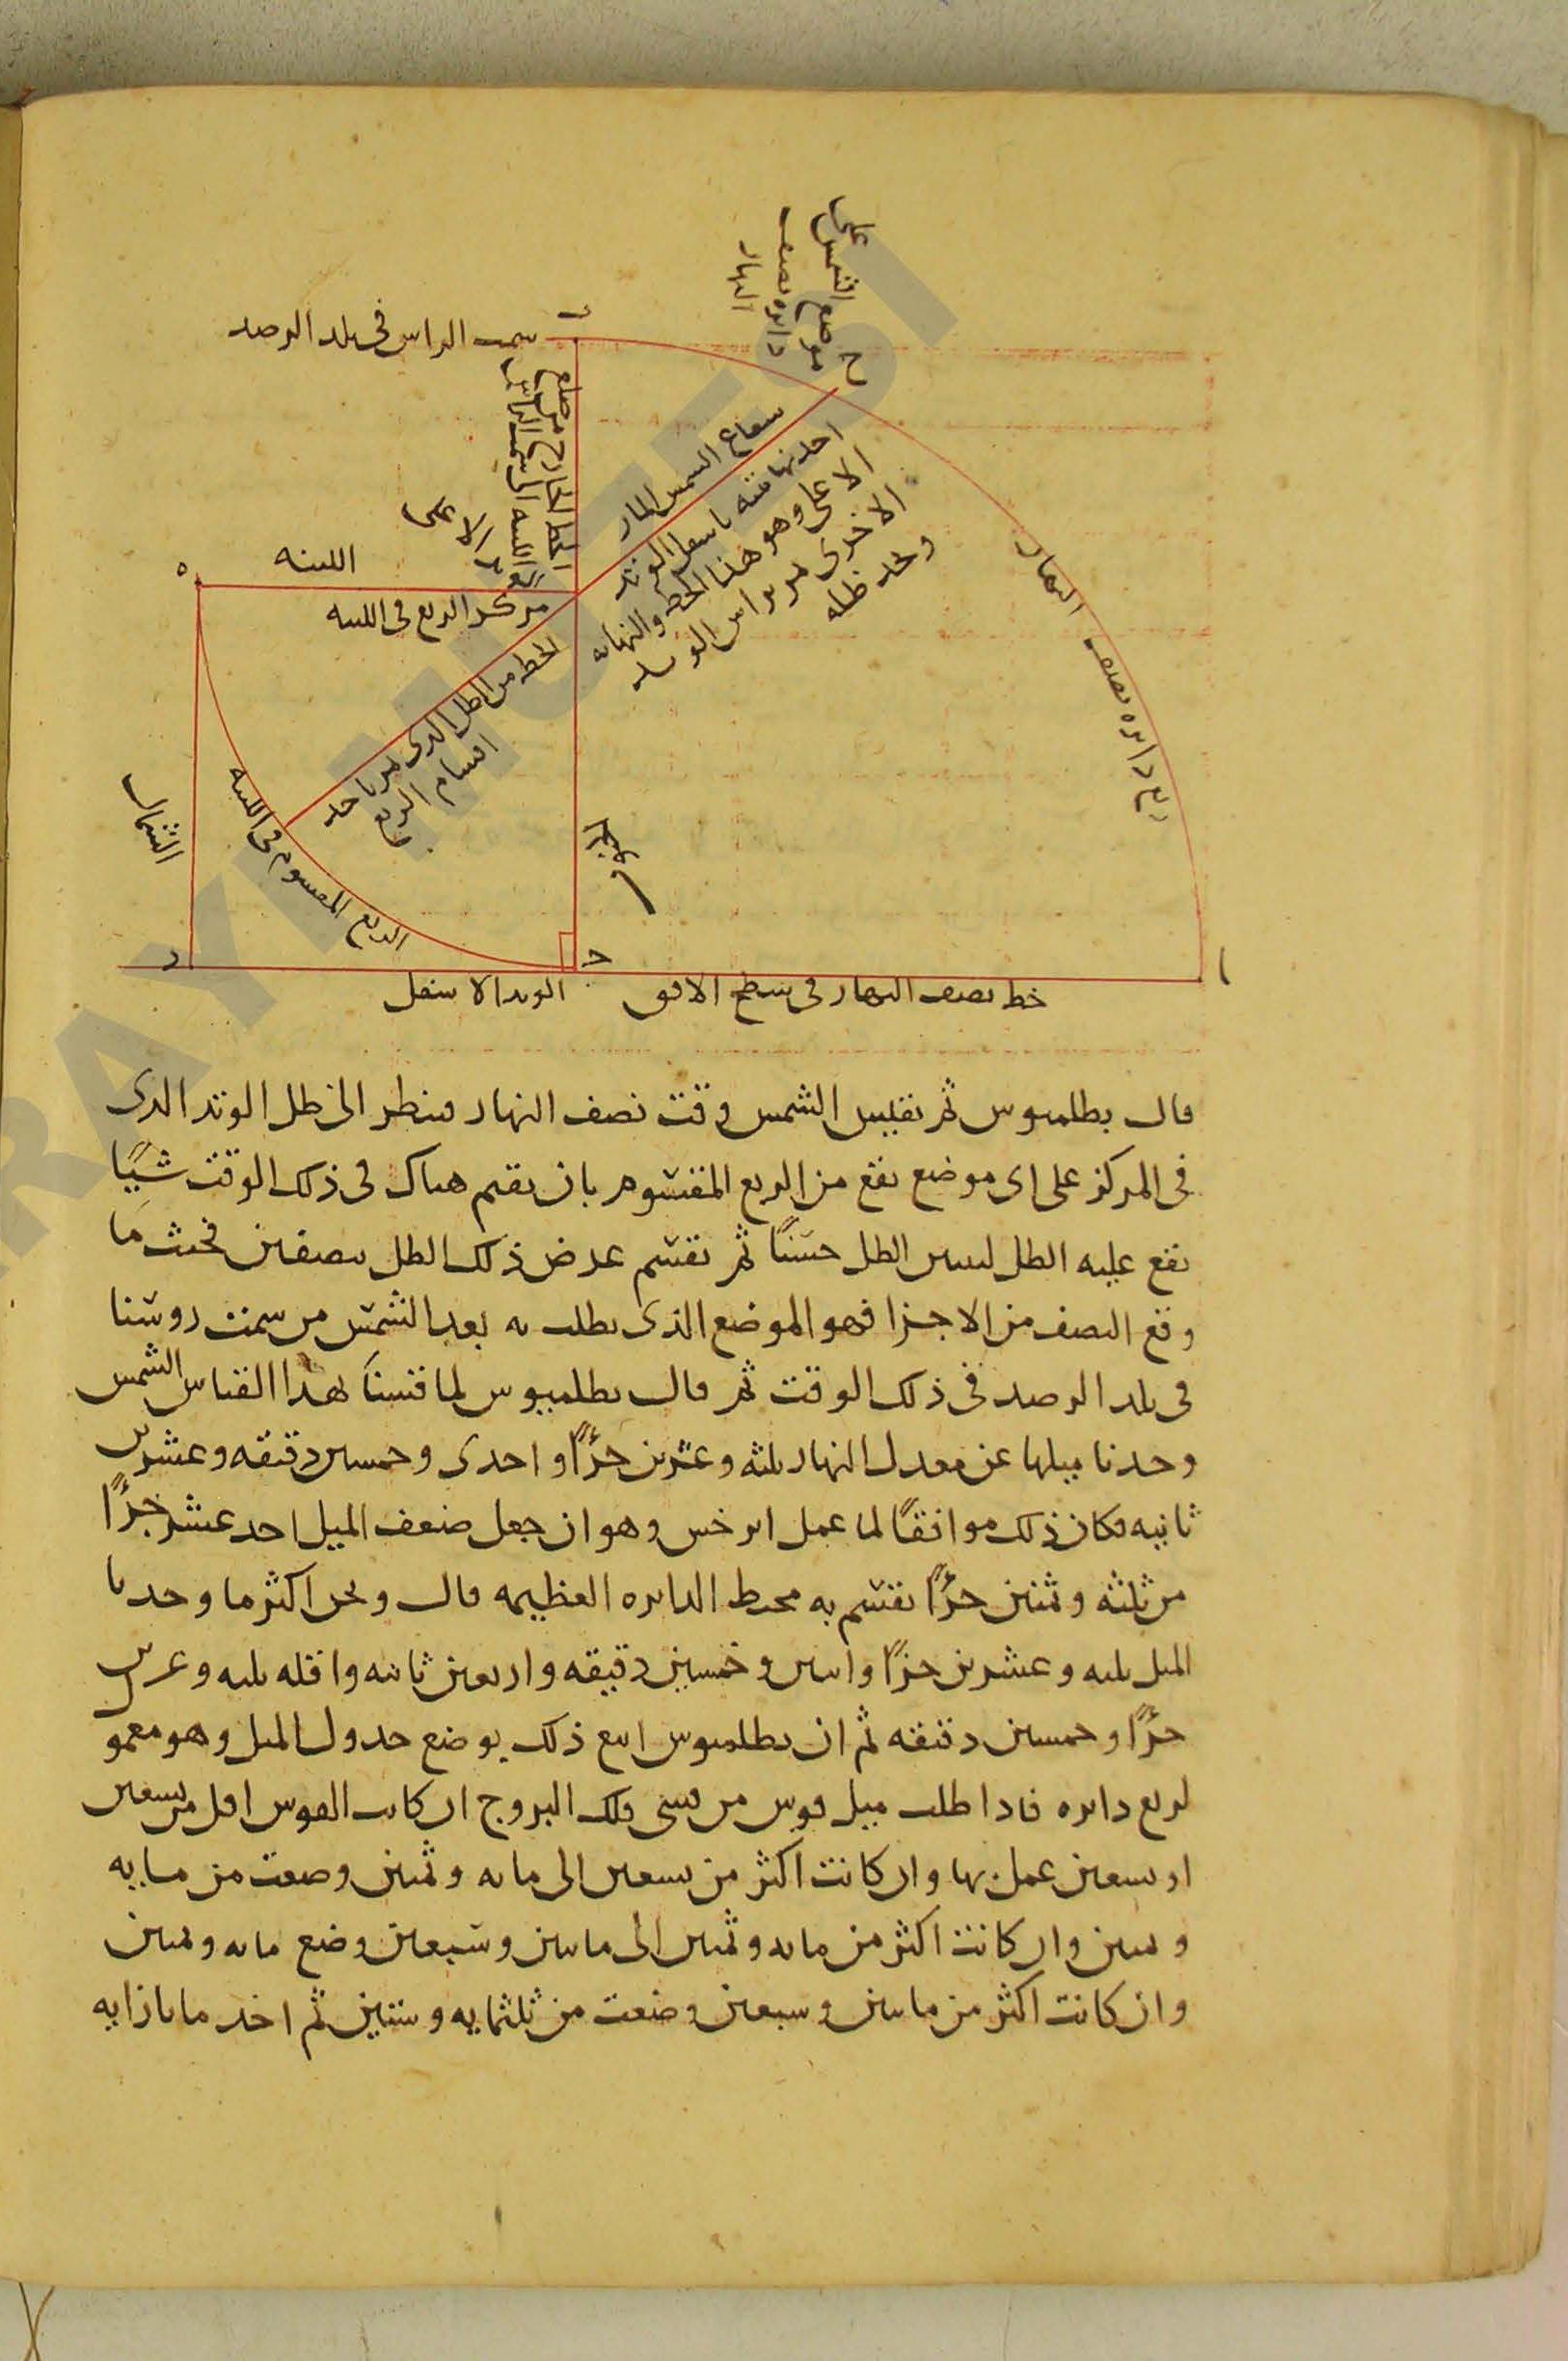 على
موضع الشمس
دائره نصف
النهار
سمت الراس فى بلد الرصد
ح
شعاع الشمس المار
احد نهايتيه باسفل الوتد
الاعلى وهو هذا الخط والنهايه
الاخرى من راس الوتد
وحد ظله
الخط الخارج من ضلع
اللبنه الى سمت الراس
الوتد الاعلى
اللبنه
ه
مركز الربع فى اللبنه
الخط من الظل الذى يمر باحد
اقسام الربع
ربع دايره نصف النهار
الشمال
الربع المقسوم فى اللبنه
الجنوب
د
ح
ا
خط نصف النهار فى سطح الافق
الوتد الاسفل
قال بطلميوس ثم نقيس الشمس وقت نصف النهار فينظر الى ظل الوتد الذى
فى المركز على اى موضع يقع من الربع المقسوم بان نقيم هناك فى ذلك الوقت شيًا
يقع عليه الظل ليبين الظل حسنًا ثم نقسم عرض ذلك الظل بنصفين فحيث ما
وقع النصف من الاجزا فهو الموضع الذى يطلب به بعد الشمس من سمت روسنا
فى بلد الرصد فى ذلك الوقت ثم قال بطلميوس لما قسنا بهذا القياس الشمس
وجدنا ميلها عن معدل النهار ثلثه وعشرين جزًا واحدى وخمسين دقيقه وعشرين
ثانيه فكان ذلك موافقًا لما عمل ابرخس وهو ان جعل ضعف الميل احد عشر جزًا
من ثلثه وثمنين جزًا نقسم به محيط الدايره العظيمه قال ونحن اكثر ما وجدنا
الميل ثلثه وعشرين جزًا واثنين وخمسين دقيقه واربعين ثانيه واقله ثلثه وعشرين
جزًا وخمسين دقيقه ثم ان بطلميوس اتبع ذلك بوضع جدول الميل وهو معمو
لربع دايره فاذا طلب ميل قوس من قسى فلك البروج ان كانت القوس اقل من تسعين
او تسعين عمل بها وان كانت اكثر من تسعين الى مايه وثمنين وضعت من مايه
وثمنين وان كانت اكثر من مايه وثمنين الى مايتين وسبعين وضع مايه وثمنين
وان كانت اكثر من مايتين وسبعين وضعت من ثلثمايه وستين ثم اخذ ما بازايه